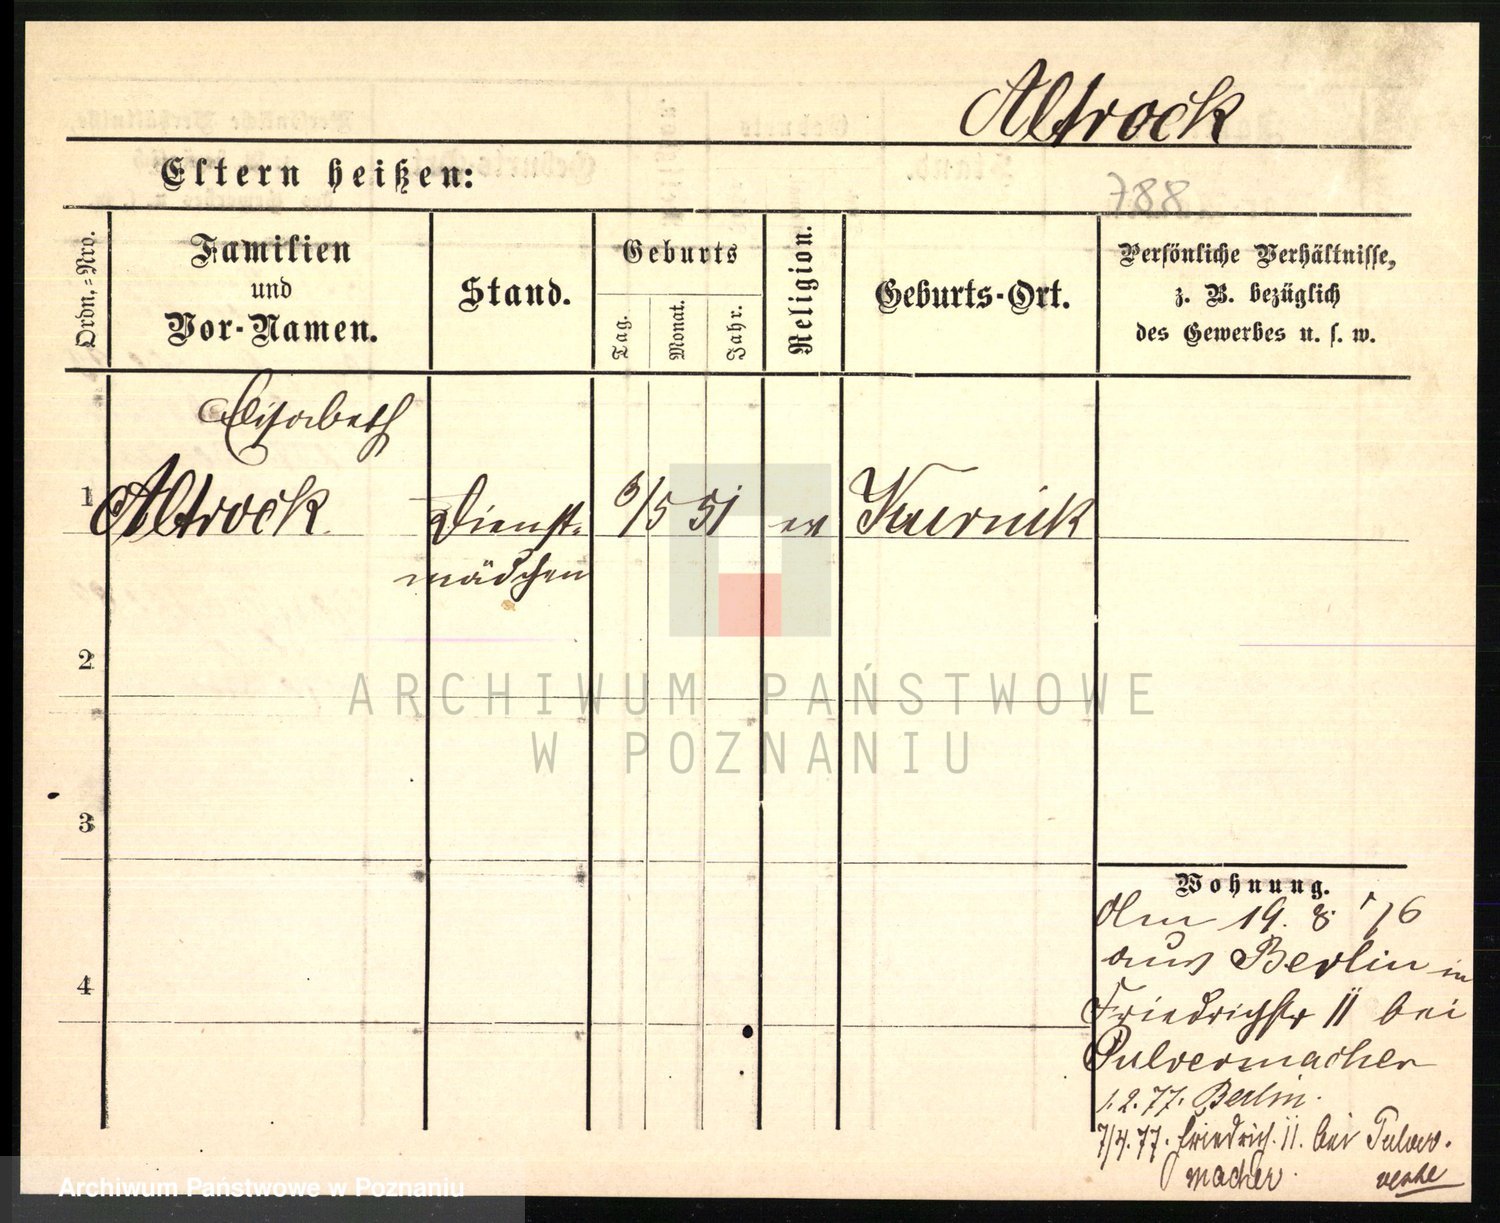 Altrock
Eltern heißen:
788
Ordn.=Nro.
Familien
und
Vor-Namen.
Stand.
Geburts
Tag.
Monat.
Jahr.
Religion.
Geburts-Ort.
Persönliche Verhältnisse,
z. B. bezüglich
des Gewerbes u. s. w.
Elisabeth
1 Altrock Dienst- /5 51 ev Kurnik
mädchen
2
3
4
Wohnung.
Am 19. 8. 76
aus Berlin in
Friedrichstr 11 bei
Pulvermacher
1. 2. 77. Berlin.
7/4. 77. Friedrich. 11. bei Pulver-
macher.
ARCHIWUM PAŃSTWOWE
W POZNANIU
Archiwum Państwowe w Poznaniu